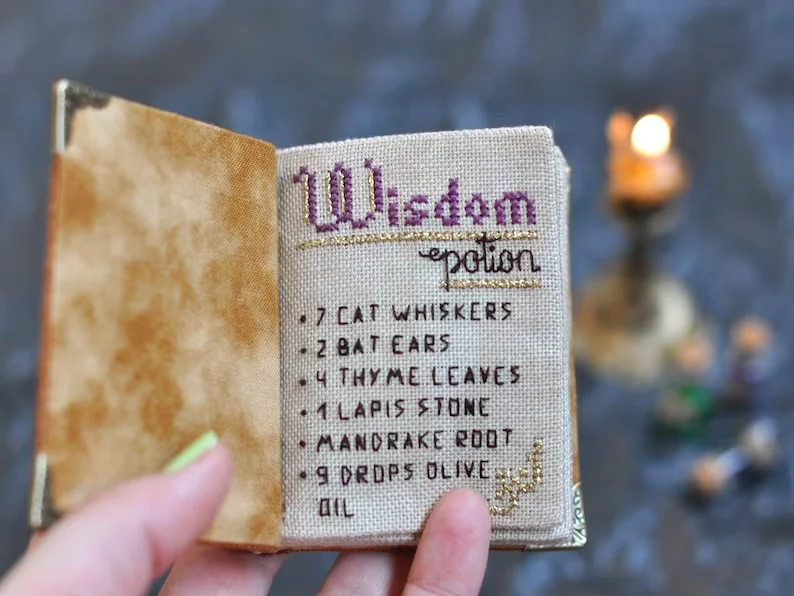 Wisdom
potion
• 7 CAT WHISKERS
• 2 BAT EARS
• 4 THYME LEAVES
• 1 LAPIS STONE
• MANDRAKE ROOT
• 9 DROPS OLIVE
OIL